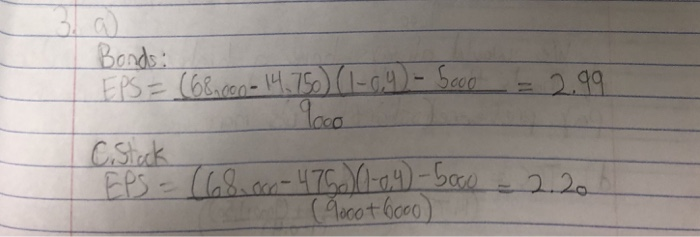 3. a)
Bonds:
EPS = (68,000-14,750)(1-0.4) - 5000 = 2.99
9000
C.Stock
EPS = (68,000-4750)(1-0.4)-5000 = 2.20
(9000+6000)